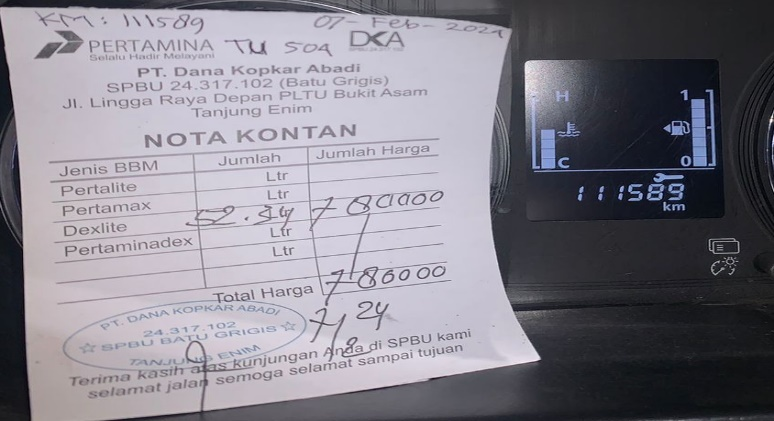 KM: 111589
07-Feb-2024
PERTAMINA TU 50A DKA
Selalu Hadir Melayani
PT. Dana Kopkar Abadi
SPBU 24.317.102 (Batu Grigis)
Jl. Lingga Raya Depan PLTU Bukit Asam
Tanjung Enim
NOTA KONTAN
Jenis BBM Jumlah Jumlah Harga
Pertalite Ltr
Pertamax Ltr
Dexlite 52.34 Ltr 780000
Pertaminadex Ltr
Total Harga 780000
PT. DANA KOPKAR ABADI
24.317.102
☆ SPBU BATU GRIGIS ☆
TANJUNG ENIM
7/2 24
Terima kasih atas kunjungan Anda di SPBU kami
selamat jalan semoga selamat sampai tujuan
H 1
C 0
111589
km